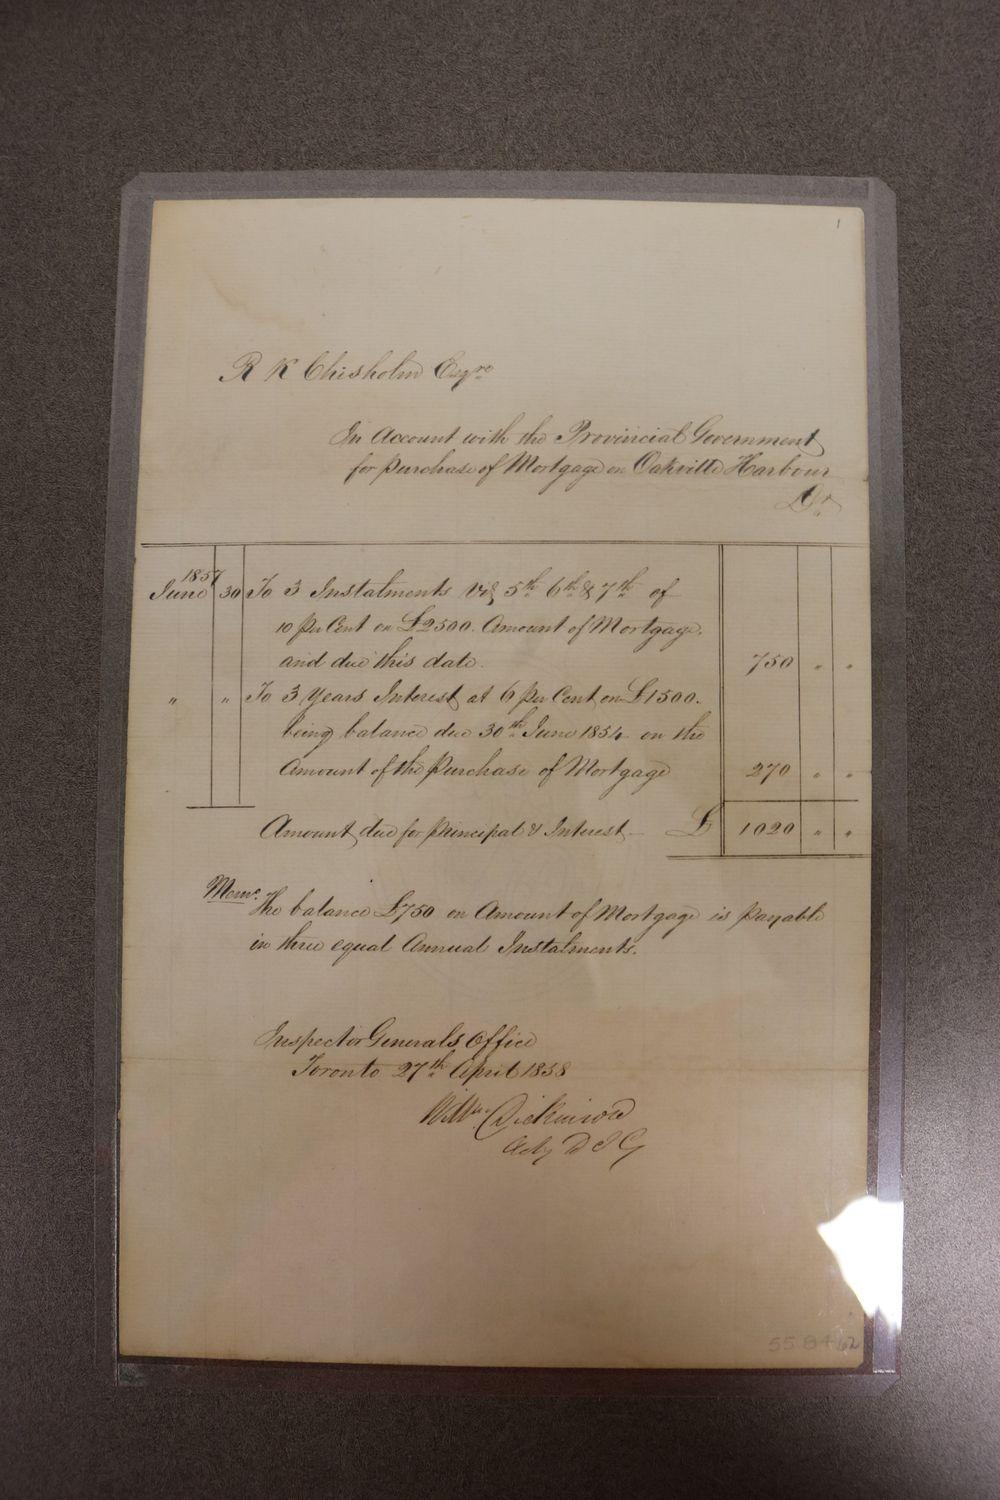 1
R K Chisholm Esqre
In Account with the Provincial Government
for purchase of Mortgage on Oakville Harbour
Dr
1857
June 30 To 3 Instalments viz 5th 6th & 7th of
10 Per Cent on £2500. Amount of Mortgage,
and due this date. 750 " "
" " To 3 Years Interest at 6 Per Cent on £1500.
being balance due 30th June 1854 on the
Amount of the Purchase of Mortgage 270 " "
Amount due for Principal & Interest £ 1020 " "
Memo.
The balance £750 on Amount of Mortgage is payable
in three equal Annual Instalments.
Inspector Generals Office
Toronto 27th April 1858
Wm Dickinson
Actg D I G